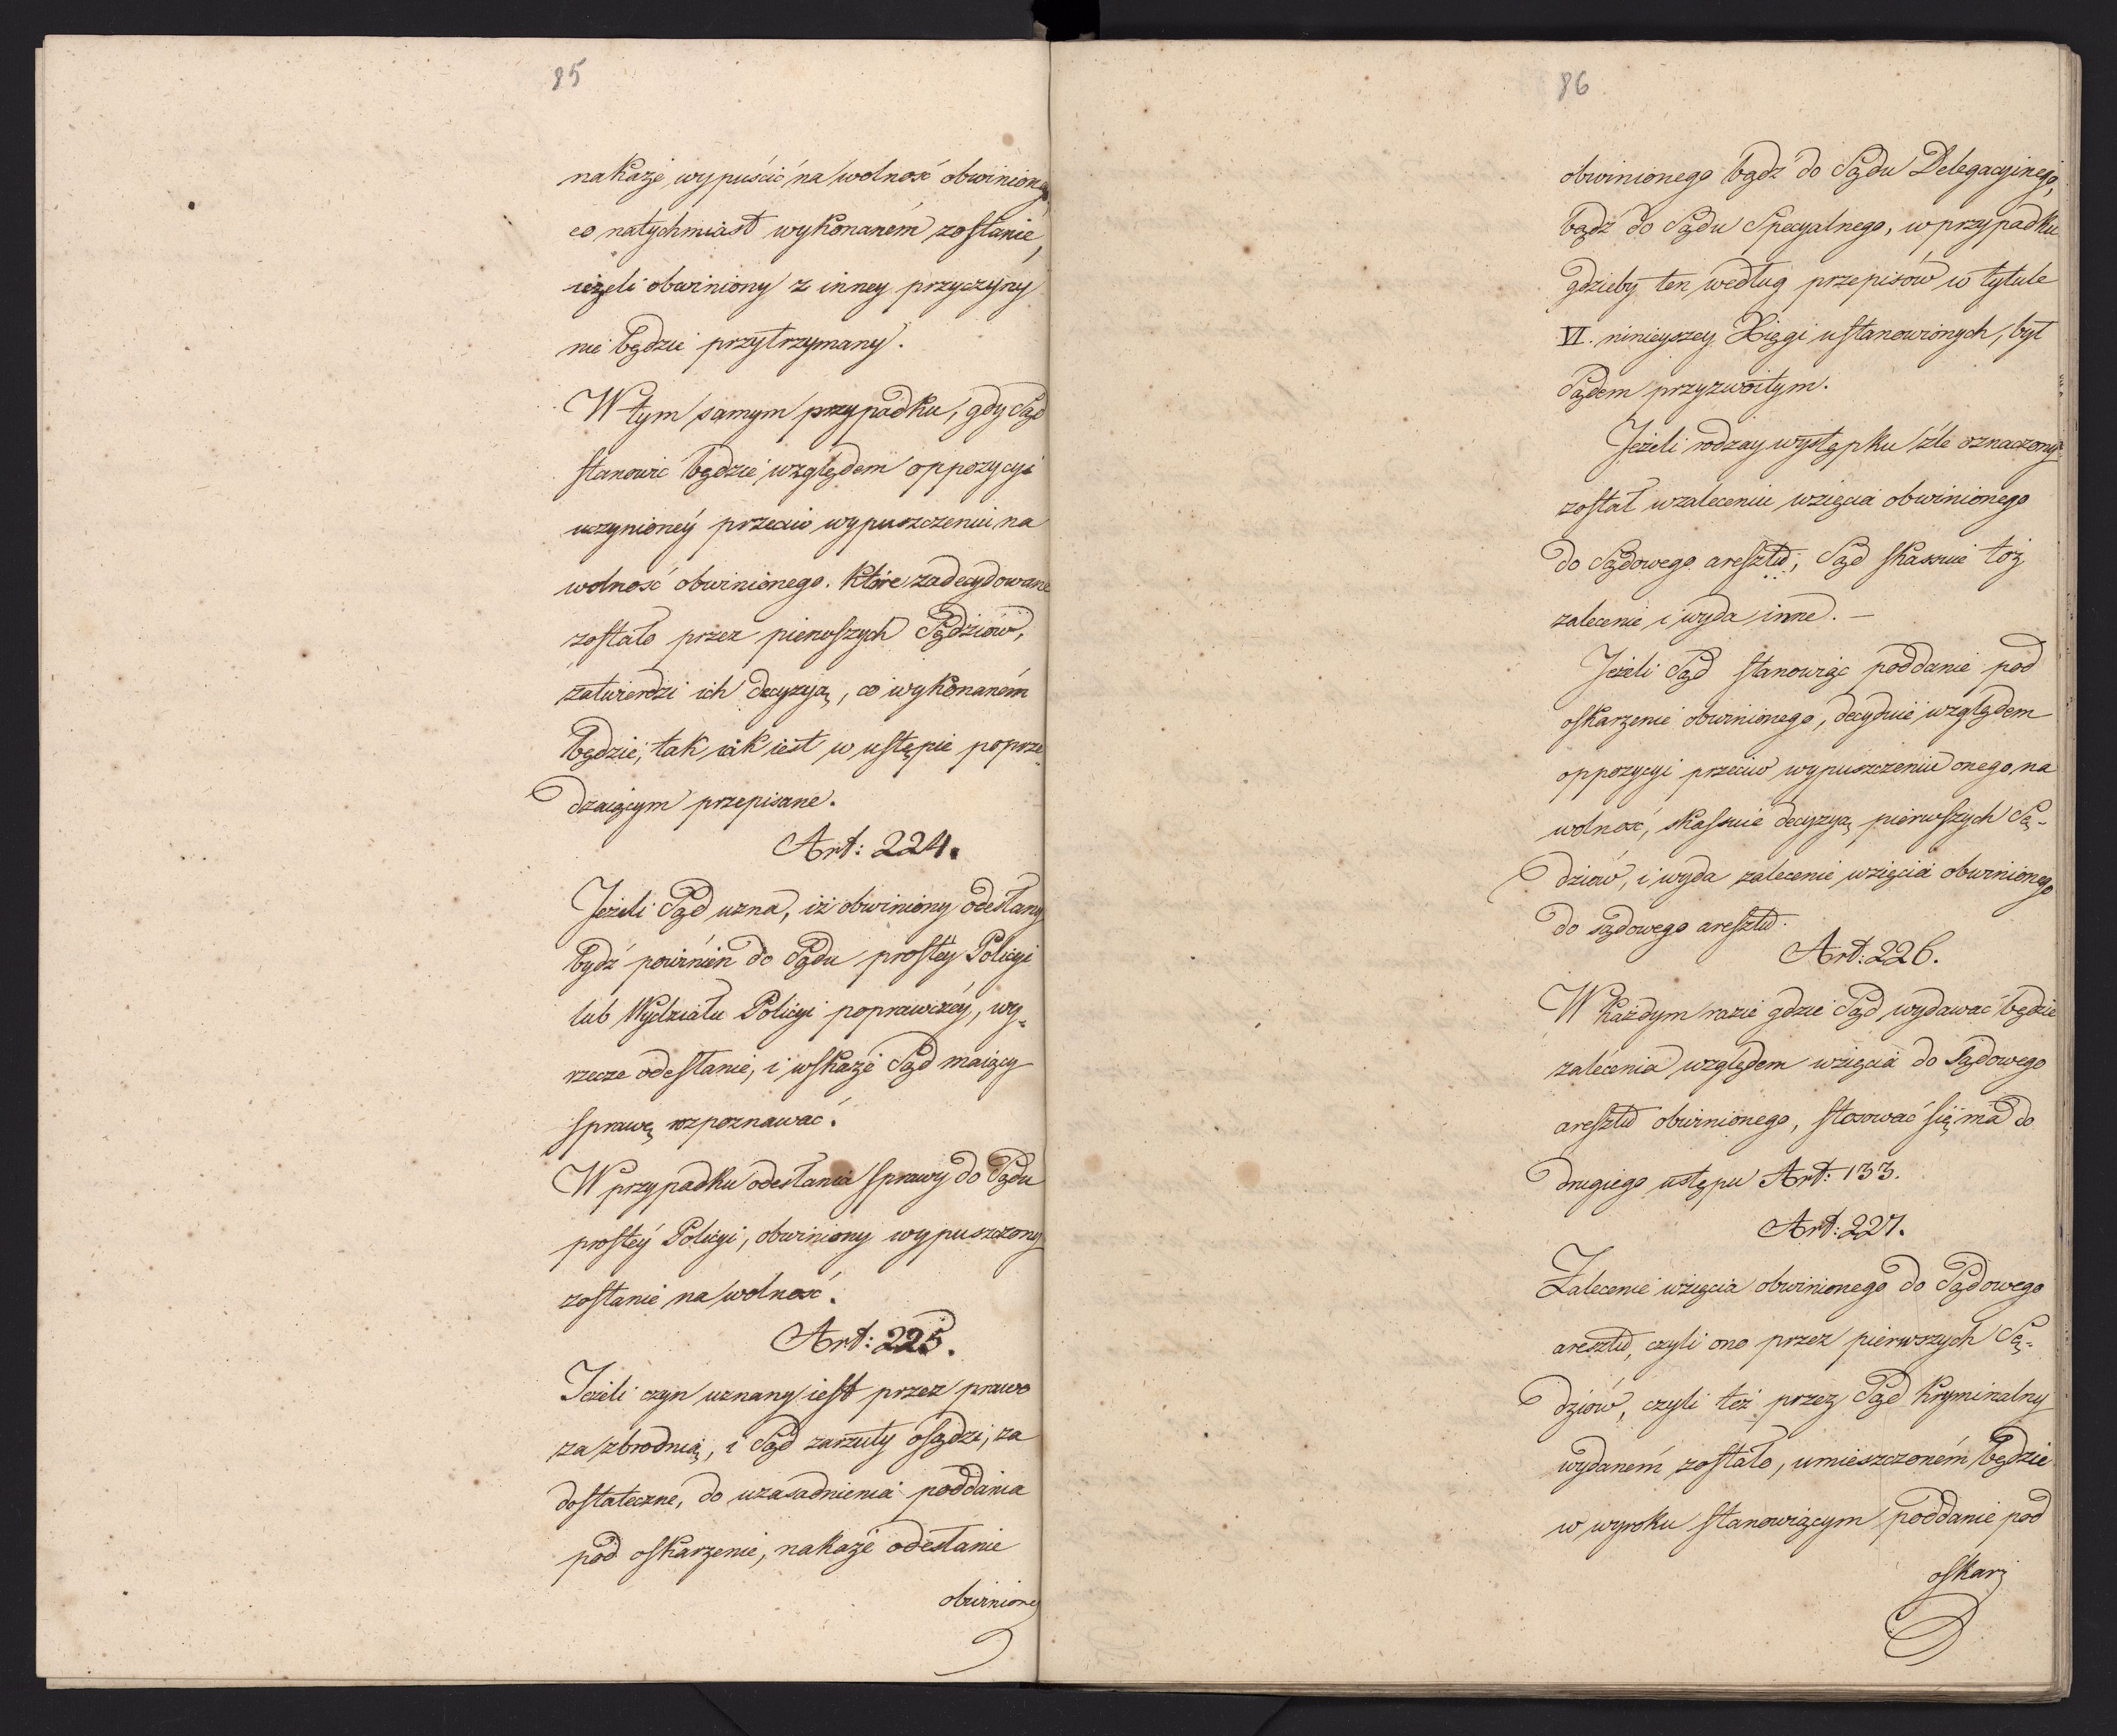 85
nakaże wypuścić na wolność obwinionego
co natychmiast wykonaném zostanie,
ieżeli obwiniony z inney przyczyny
nie będzie przytrzymany.
W tym samym przypadku, gdy Sąd
stanowić będzie względem oppozycyi
uczynioney przeciw wypuszczeniu na
wolność obwinionego. które zadecydowane
zostało przez pierwszych Sędziów,
zatwierdzi ich decyzyą, co wykonaném
będzie, tak iak iest w ustępie poprze„
dzaiącym przepisane.
Art: 224.
Jeżeli Sąd uzna, iż obwiniony odesłany
bydź powinien do Sądu prostey Policyi
lub Wydziału Policyi poprawczey, wy„
rzecze odesłanie, i wskaże Sąd maiący
sprawę rozpoznawać.
W przypadku odesłania sprawy do Sądu
prostey Policyi, obwiniony wypuszczony
zostanie na wolność.
Art: 225.
Jeżeli czyn uznany iest przez prawo
za zbrodnią, i Sąd zarzuty osądzi, za
dostateczne, do uzasadnienia poddania
pod oskarzenie, nakaże odesłanie
obwiniony
86
obwinionego bądź do Sądu Delegacyinego,
bądź do Sądu Specyalnego, w przypadku
gdzieby ten według przepisów w tytule
VI. ninieyszey Xięgi ustanowionych, był
Sądem przyzwoitym.
Jeżeli rodzay występku źle oznaczony
został w zaleceniu wzięcia obwinionego
do Sądowego aresztu; Sąd skassuie toż
zalecenie i wyda inne. –
Jeżeli Sąd stanowiąc poddanie pod
oskarzenie obwinionego, decyduie względem
oppozycyi przeciw wypuszczeniu onego na
wolność, skassuie decyzyą pierwszych Sę-
dziów, i wyda zalecenie wzięcia obwinionego
do sądowego aresztu.
Art: 226.
W każdym razie gdzie Sąd wydawać będzie
zalecenia względem wzięcia do Sądowego
aresztu obwinionego, stosować się ma do
drugiego ustępu Art: 133.
Art: 227.
Zalecenie wzięcia obwinionego do Sądowego
aresztu, czyli ono przez pierwszych Sę-
dziów, czyli też przez Sąd kryminalny
wydaném zostało, umieszczoném będzie
w wyroku stanowiącym poddanie pod
oskarż